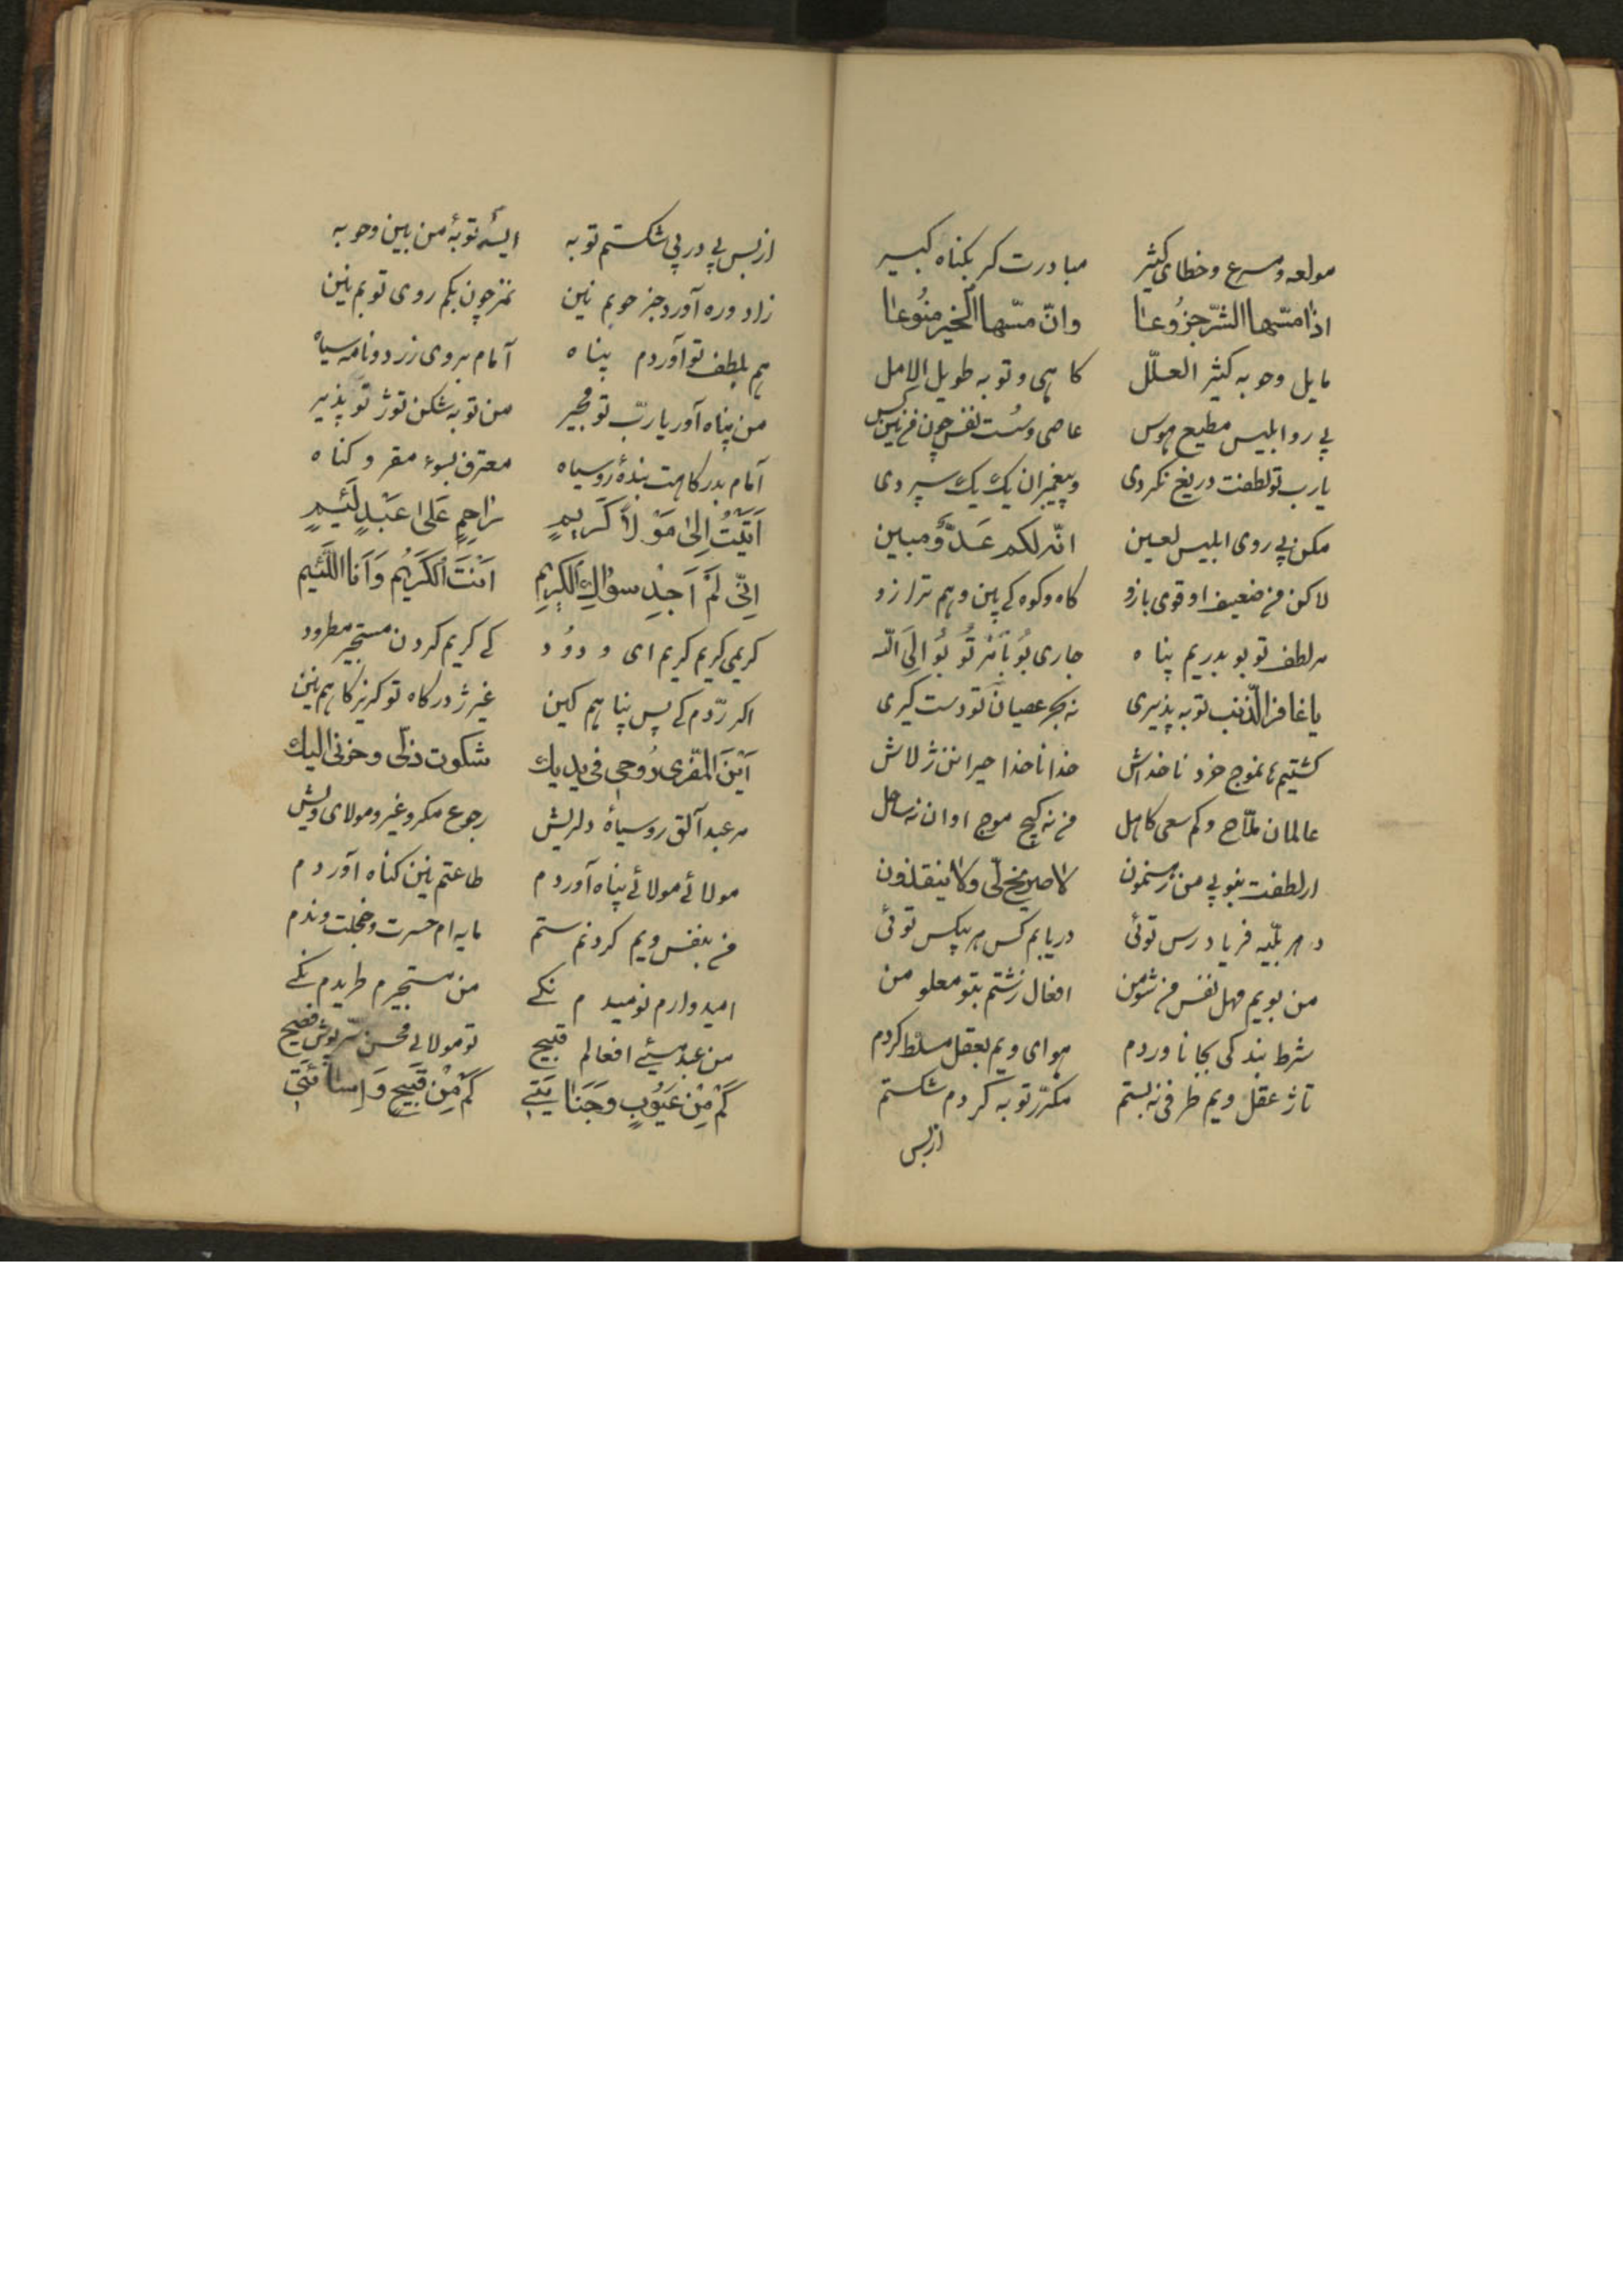 مولعه و مسرع و خطای کثیر مبادرت کر بکناه کبیر
اذا مسّها الشرّ جزُوعا وانّ مسّها الخیر منُوعا
مایل وحوبه کثیر العلّل کاهی و توبه طویل الامل
پی رو ابلیس مطیع هوس عاصی وسُست نفس چون من نین کس
یارب تو لطفت دریغ نکردی و پیغمبران یک یک سپردی
مکن پی روی ابلیس لعین انّه لکم عَدوٌّ مبین
لاکن من ضعیف او قوی بازو کاه وکوه کی پین و هم ترازو
هر لطف تو بو بدریم پناه جاری بُو بامر تُوبُوا اِلَی الله
یا غافر الذّنب توبه پذیری نه بحر عصیان تو دست کیری
کشتیم نموج خرد ناخداش خدا ناخدا حیرانن ژ لاش
عالمان ملّاح و کم سعی کاهل من نه کیج موج اوان نه ساحل
ار لطفت نبو پی من رهنمون لا صریخ لی ولا ینقذون
د هر بلّیه فریاد رس توئی دریابم کس هر بیکس توئی
من بویم مهل نفس من شومن افعال زشتم بتو معلومن
شرط بندکی بجا ناوردم هوای ویم بعقل مسلط کردم
تا ژ عقل ویم طرفی نه بستم مکرّر توبه کردم شکستم
ازبس
ازبس پی در پی شکستم توبه ایسه توبهٔ من بین وحوبه
زاد و ره آورد جز حوبم نین نمز چون بکم روی توبم نین
هم بلطف تو آوردم پناه آمام بروی زرد و نامه سیاه
من پناه آور یا ربّ تو مجیر من توبه شکن توژ تو پذیر
آمام بدرکاهت بندهٔ روسیاه معترف بسوء مقر و کناه
اَتَیْتُ اِلیٰ مَوْلاً کَریمٍ رٰاحِمٍ عَلیٰ عَبْدٍ لَئیمٍ
اِنّی لَمْ اَجِدْ سِوٰاكَ الکَریمِ اَنْتَ الکَریُم وَاَنَا اللَئیم
کریمی کریم کریم ای ودوُد کی کریم کردن مستجیر مطرود
اکر ردّم کی پس پناهم کین غیر ژ درکاه تو کریزکاهم نین
اَیْنَ المَفّری رُوحی فی یدیك شکوت ذلّی وحزنی الیك
هر عبد آلق روسیاهٔ دلریش رجوع مکر و غیر و مولای ویش
مولائی مولائی پناه آوردم طاعتم نین کناه آوردم
من بنفس ویم کردنم ستم مایه ام حسرت و خجلت و ندم
امیدوارم نومیدم نکی من مستجیرم طریدم نکی
من عبد مسیئی افعالم قبیح تو مولای محسن سّرپوش فضیح
کَمْ مِنْ عُیُوبٍ وَجَنٰایَتی کَمْ مِنْ قَبیحٍ وَ اِساٰئَتی